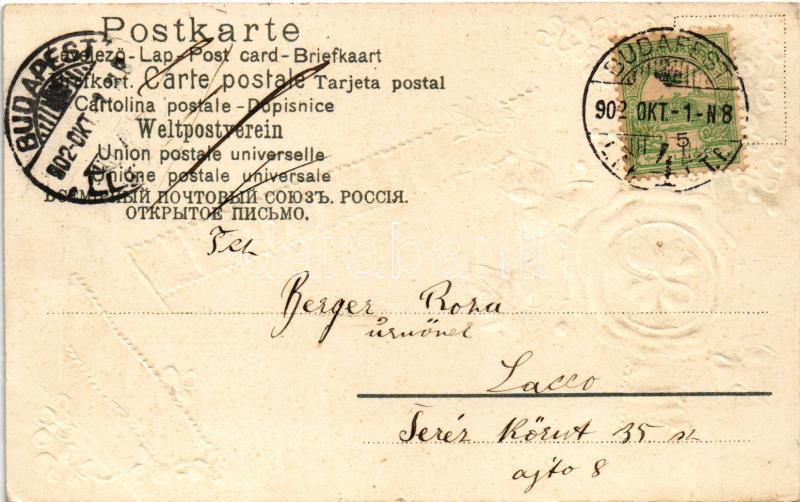 Postkarte
Levelező-Lap-Post card-Briefkaart
Brefkort. Carte postale Tarjeta postal
Cartolina postale-Dopisnice
Weltpostverein
Union postale universelle
Unione postale universale
ВСЕМІРНЫЙ ПОЧТОВЫЙ СОЮЗЪ. РОССІЯ.
ОТКРЫТОЕ ПИСЬМО.
BUDAPEST
902 OKT.
BUDAPEST
902 OKT.-1-N8
5
Tek
Berger Rosa
úrnőnek
Lacco
Teréz Körut 35 sz
ajto 8
darabanth